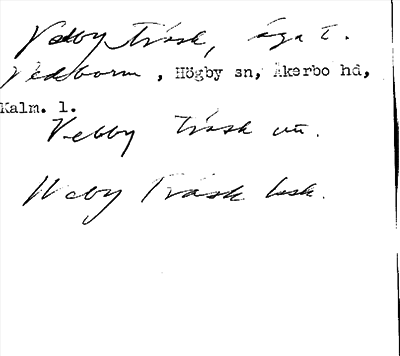 Vedby träsk, äga t.
Vedborm, Högby sn, Åkerbo hd,
Kalm. l.
Vebby träsk
Weby Träsk